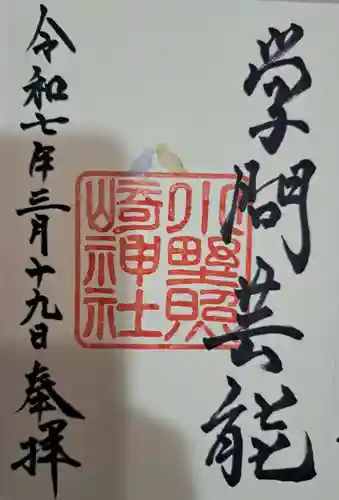 学問芸能
小野照
崎神社
令和七年三月十九日
奉拝